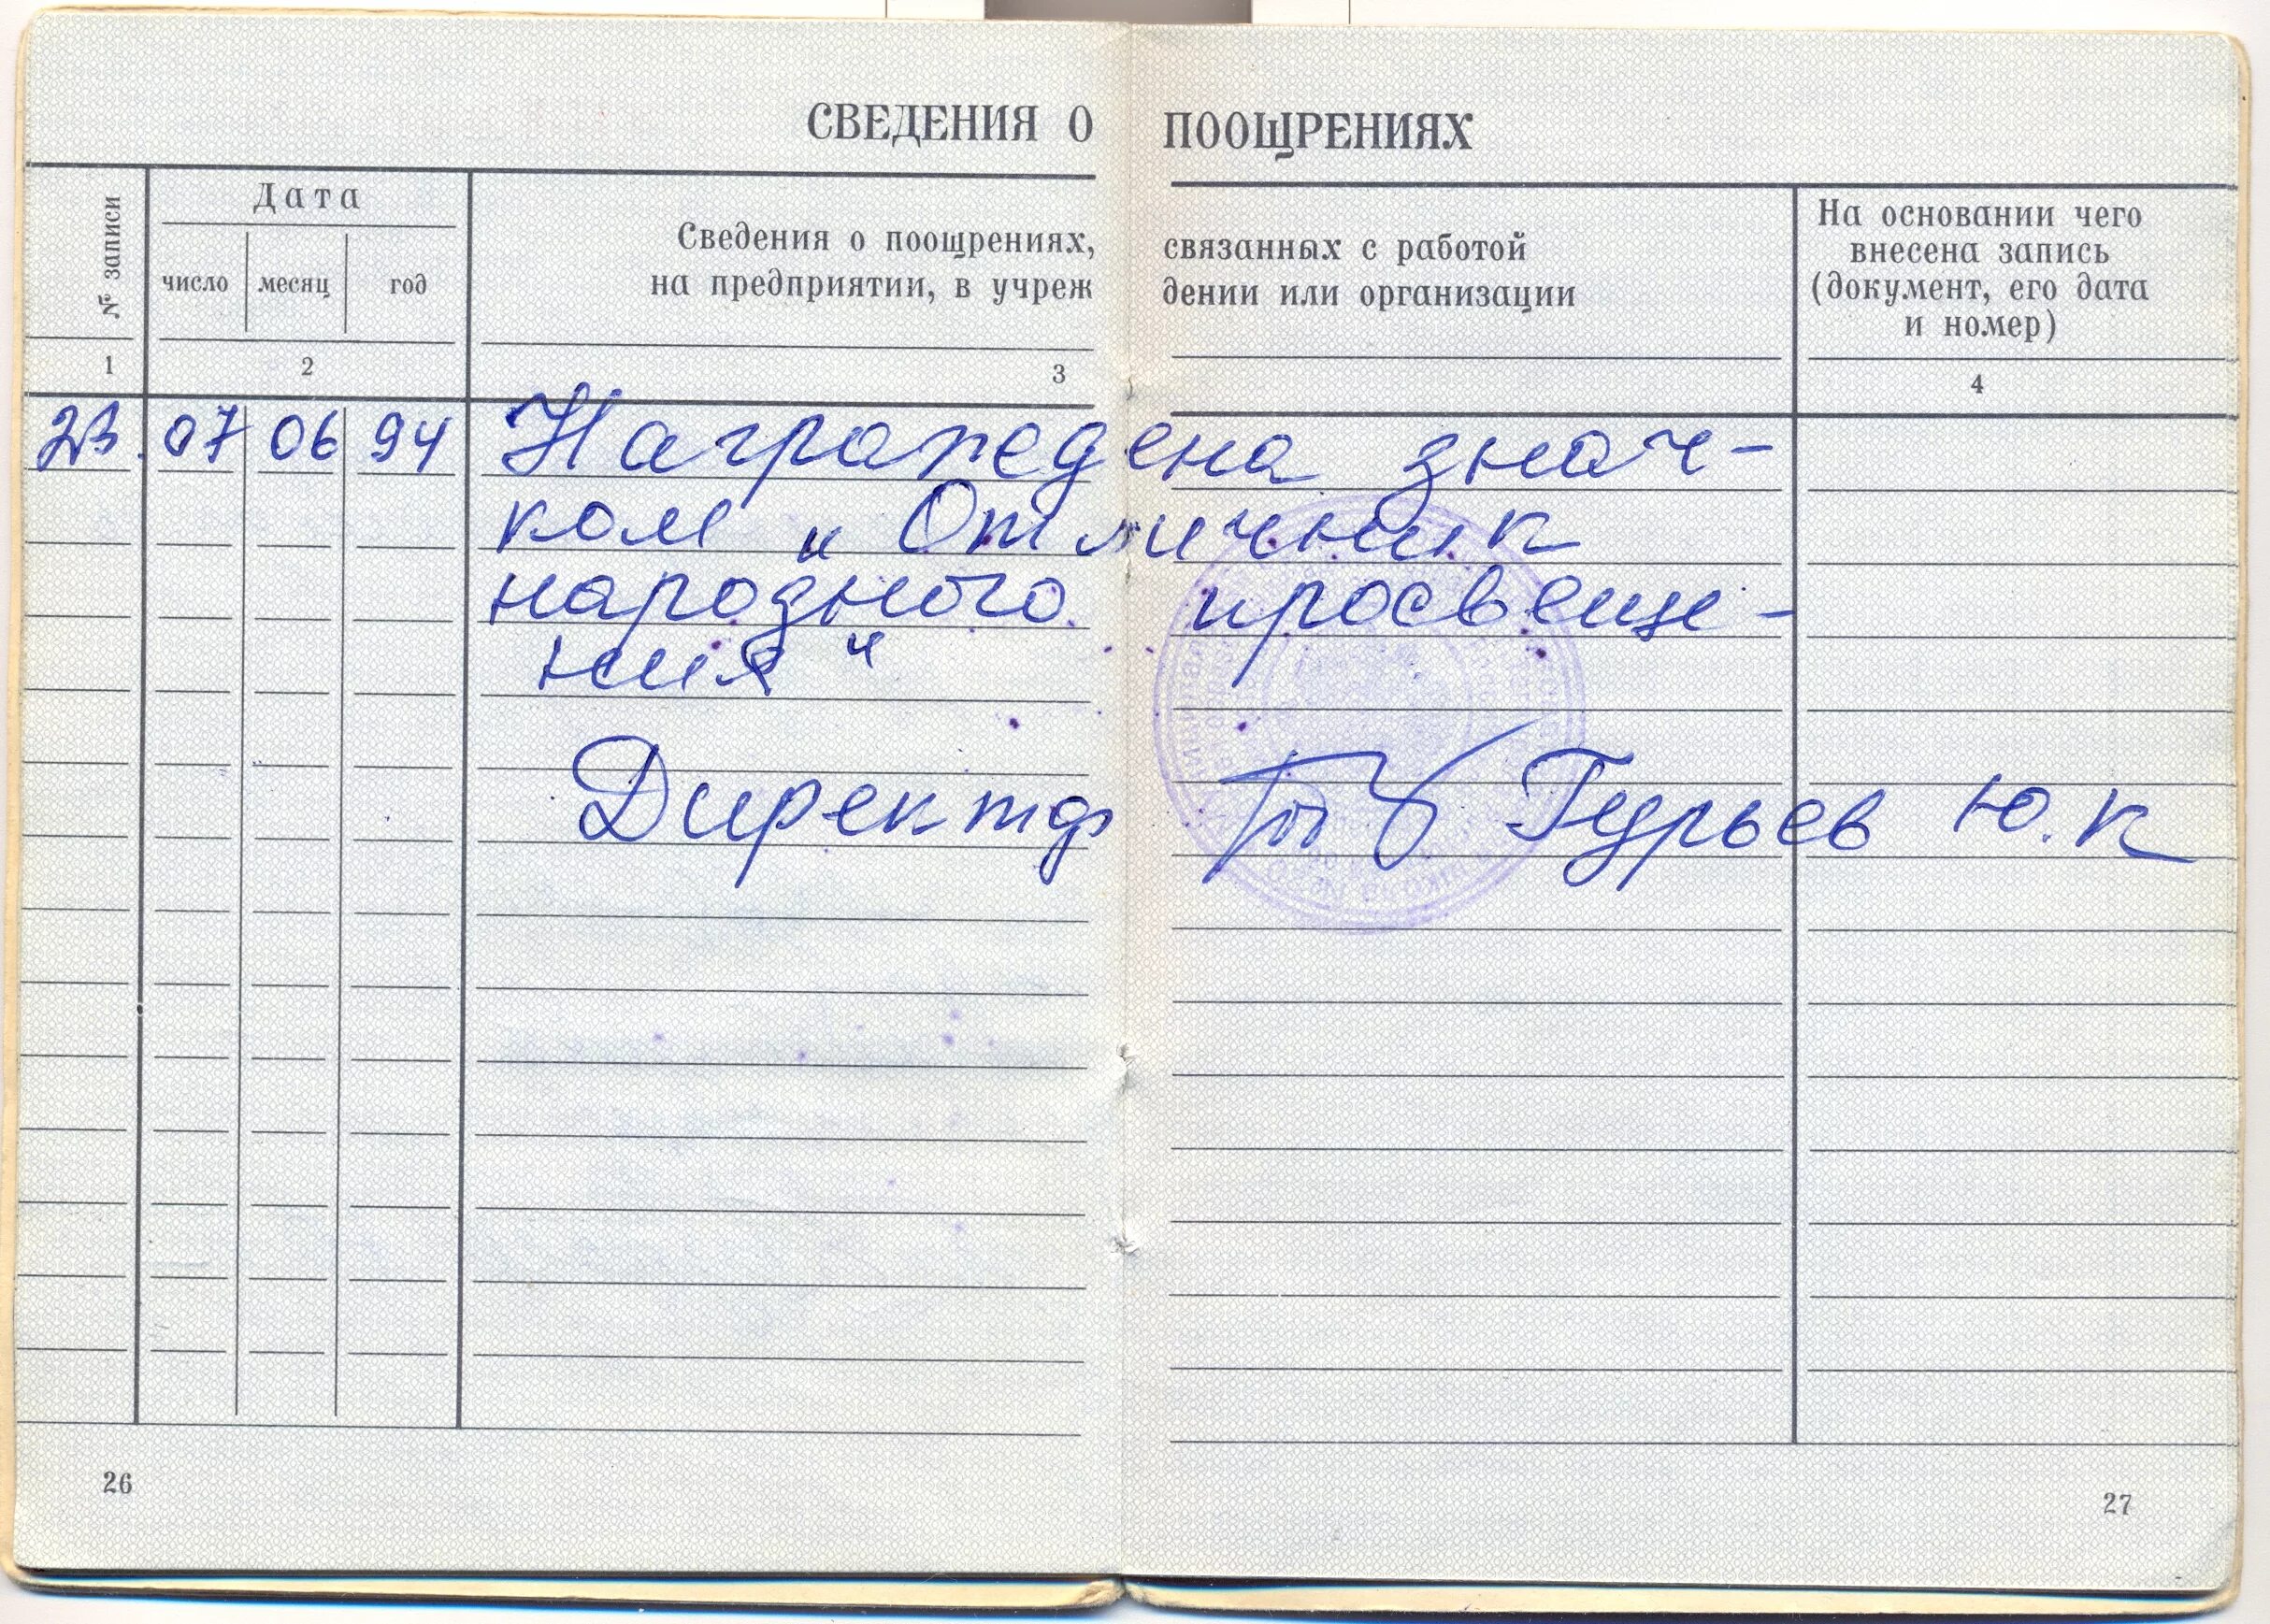 СВЕДЕНИЯ О ПООЩРЕНИЯХ
№ записи
Дата
число месяц год
Сведения о поощрениях, связанных с работой
на предприятии, в учреж дении или организации
На основании чего
внесена запись
(документ, его дата
и номер)
1 2 3 4
23. 07 06 94 Награждена знач-
ком „Отличник
народного просвеще-
ния“
Директор Гурьев Ю.К
26
27